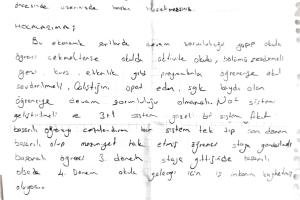 öncesinde üzerinde baskı hissetmesin.
HOCALARIMA;
Bu ekonomik şartlarda devam zorunluluğu yapıp okula
öğrenci çekmektense okulda aktivite okulu, bölümü
gezi, kurs, etkinlik gibi programlarla öğrenciye okul
sevdirilmeli. Çalıştığım, apart eden, sgk kaydı olan
öğrenciye devam zorunluluğu olmamalı. Not sistemi
geliştirilmeli 3+1 sistem güzel bir sistem fakat
başarılı öğrenciyi cezalandıran bir sistem tek tip son dönem
başarılı olup mezuniyet hak etmiş öğrenci staja gönderilmeli
başarılı öğrenci 3. dönem staja gittiğinde başarılı
olsada 4. Dönem okula geleceği için iş imkanını kaybetmiş
oluyor.